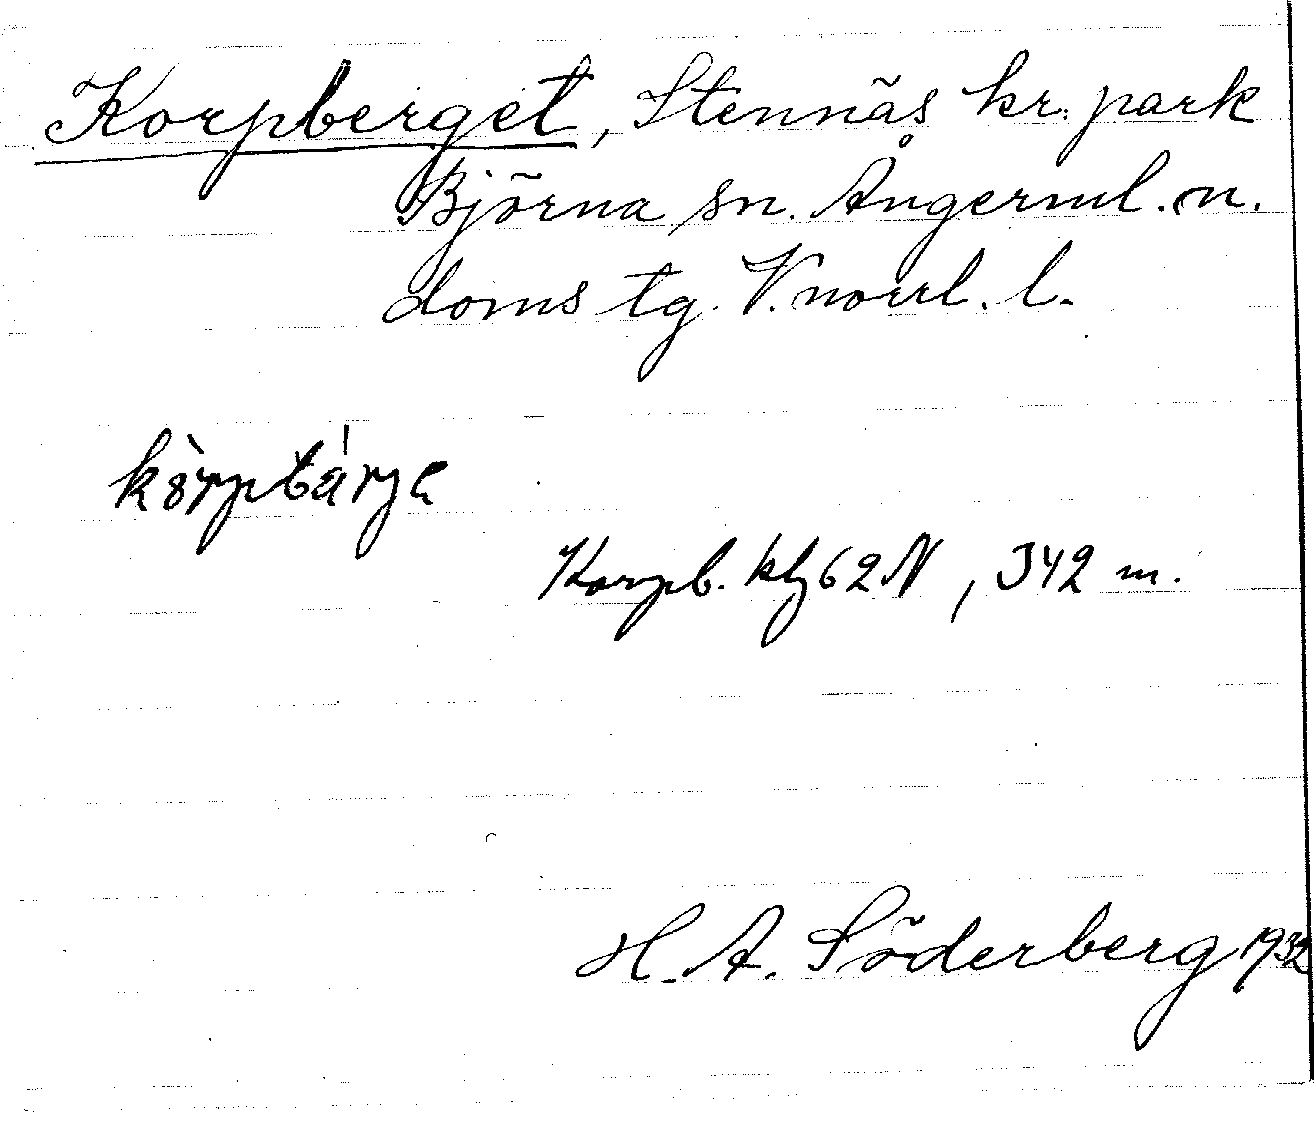 Korpberget, Stennäs kr. park
Björna sn. Ångerml. n.
doms tg. V.norrl. l.
Korpb. kbl 62 N, 342 m.
H. A. Söderberg 1932